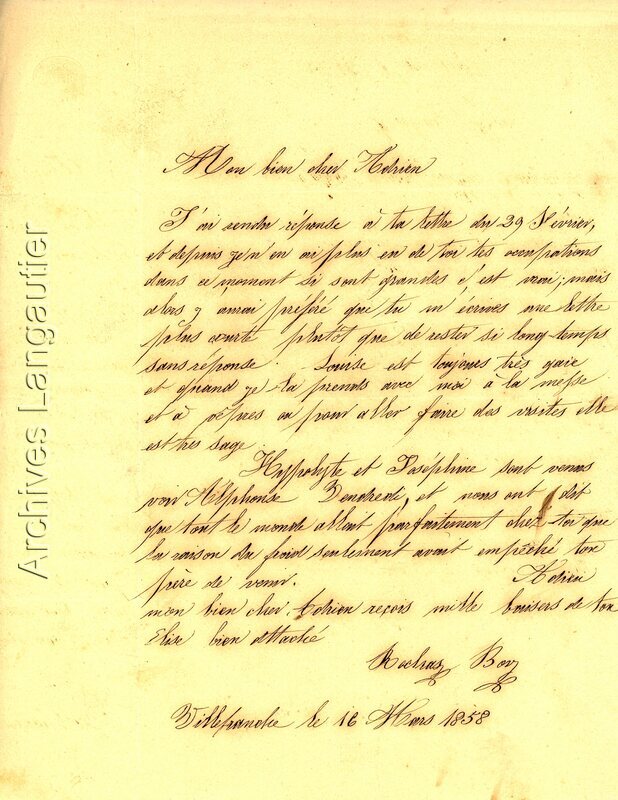 Mon bien cher Adrien
J'ai rendu réponse à ta lettre du 29 Février,
et depuis je n'en ai plus eu de toi tes occupations
dans ce moment si sont grandes c'est vrai; mais
alors j'aurai préféré que tu m'écrives une lettre
plus courte plutôt que de rester si long-temps
sans réponse. Louise est toujours très gaie
et quand je la prends avec moi à la messe
et à vêpres ou pour aller faire des visites elle
est très sage.
Hyppolyte et Joséphine sont venus
voir Alphonse Vendredi, et nous ont dit
que tout le monde allait parfaitement chez toi que
la raison du froid seulement avait empêché ton
père de venir. Adieu
mon bien cher Adrien reçois mille baisers de ton
Elise bien attaché
Rochas Bory
Villefranche le 16 Mars 1858
Archives Langautier